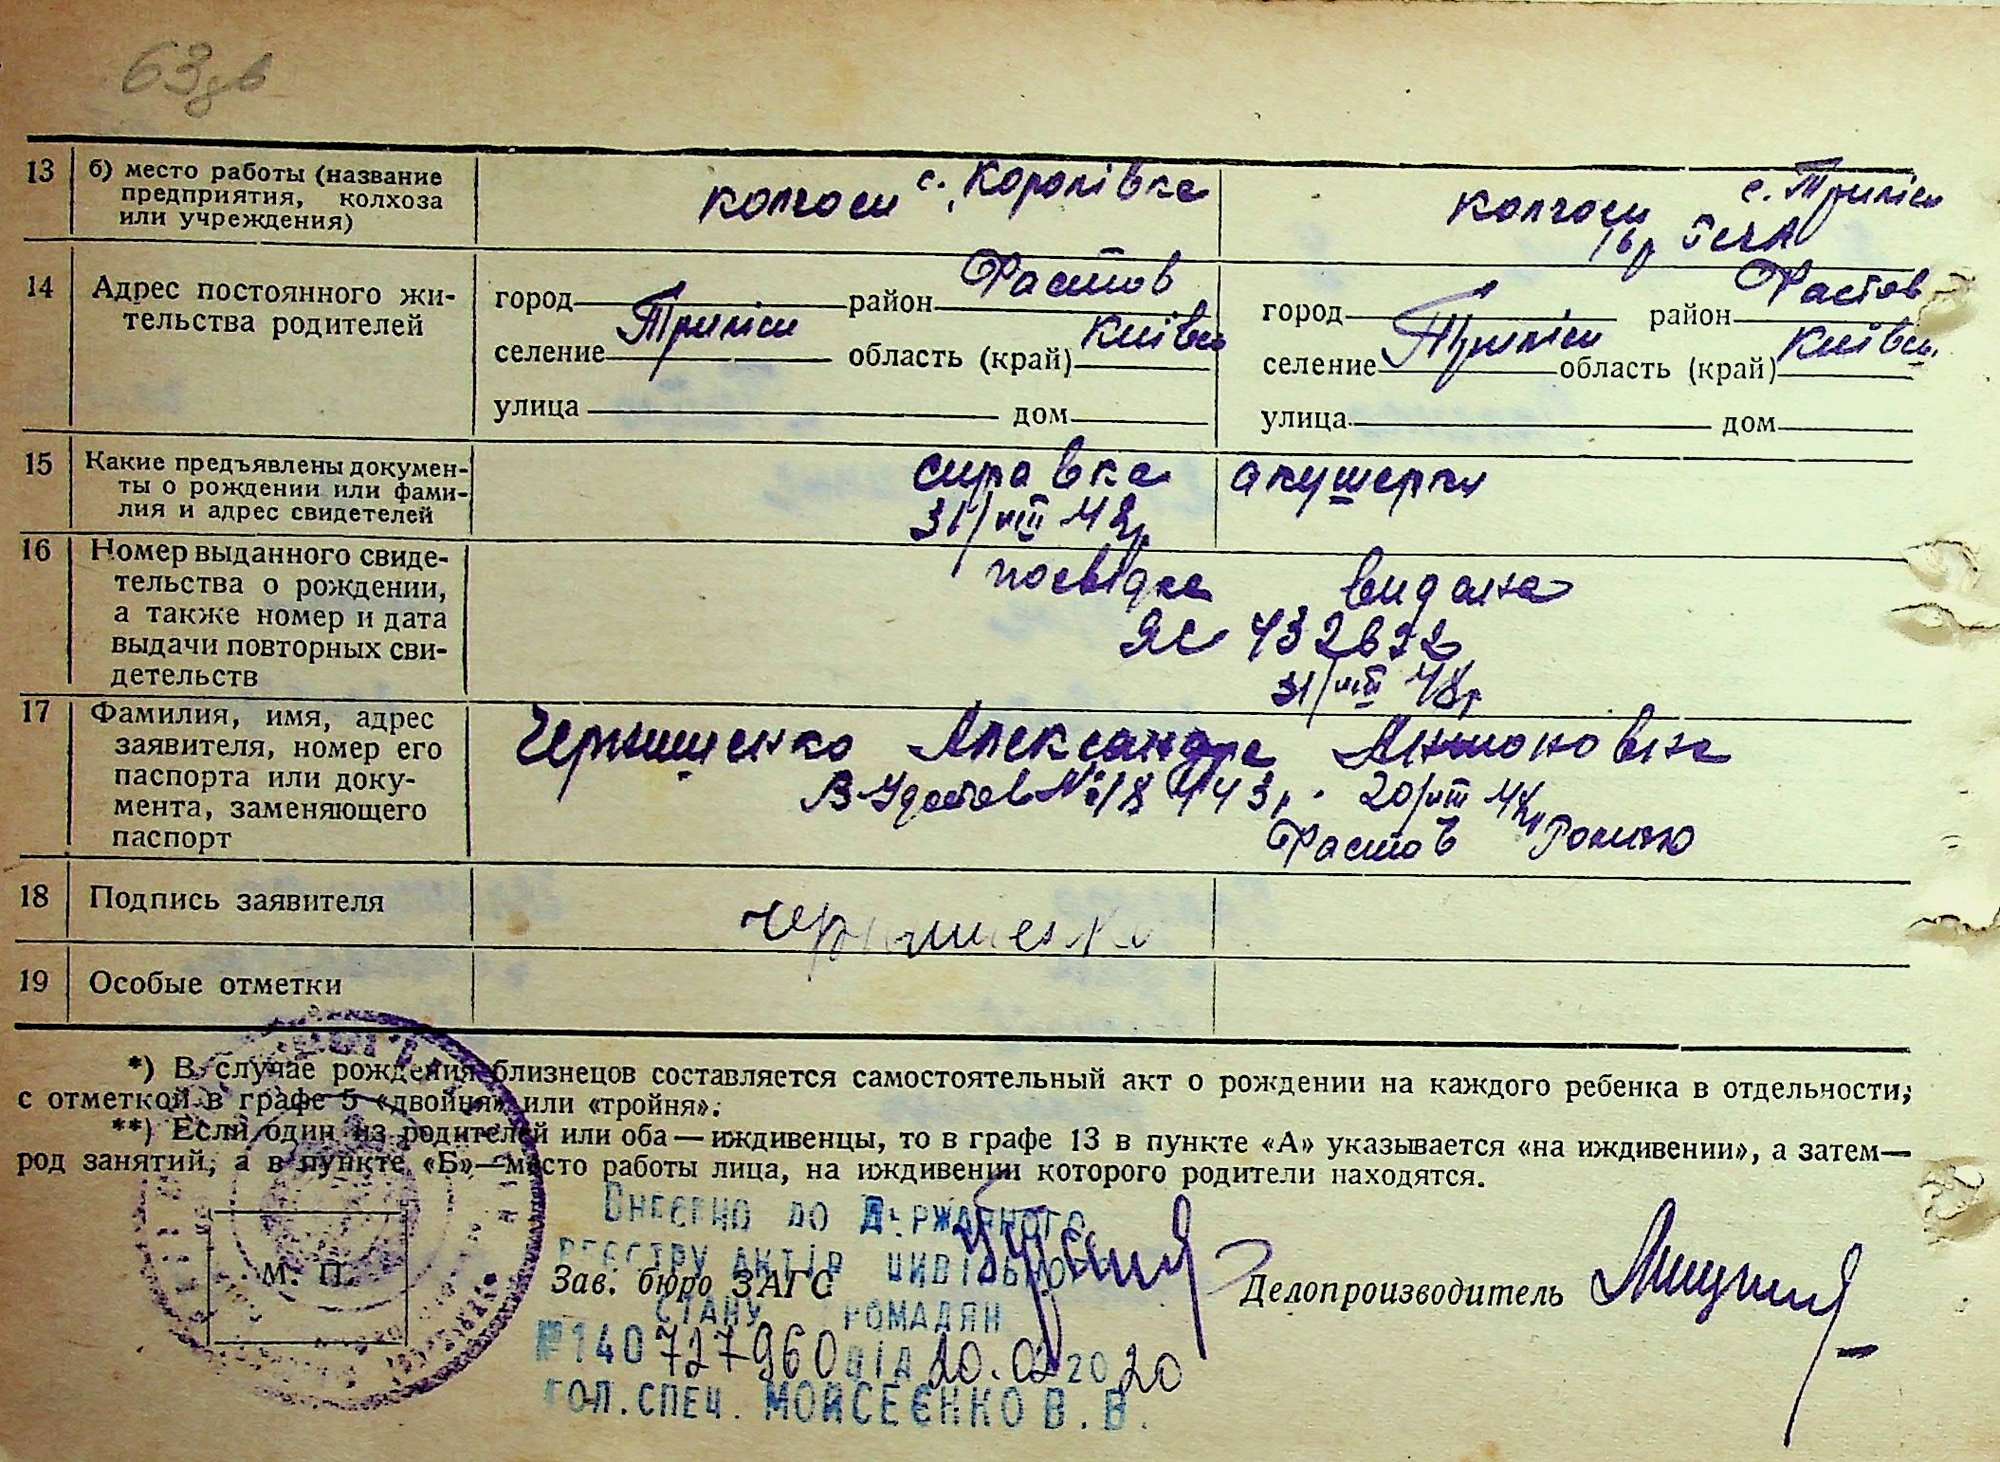 63
13 б) место работы (название
предприятия, колхоза
или учреждения)
колгосп с. Королівка
колгосп с. Триліси
14 Адрес постоянного жи-
тельства родителей
город район Фастов
селение Триліси область (край) Київськ
улица дом
город район Фастов
селение Триліси область (край) Київськ.
улица дом
15 Какие предъявлены докумен-
ты о рождении или фами-
лия и адрес свидетелей
справка акушерки
31/VIII 48р.
16 Номер выданного свиде-
тельства о рождении,
а также номер и дата
выдачи повторных сви-
детельств
посвідка видана
ЯС
31/VIII 48р.
17 Фамилия, имя, адрес
заявителя, номер его
паспорта или доку-
мента, заменяющего
паспорт
Чернишенко Александра Антоновна
20/VIII 48р
Фастов
18 Подпись заявителя
Чернишенко
19 Особые отметки
*) В случае рождения близнецов составляется самостоятельный акт о рождении на каждого ребенка в отдельности,
с отметкой в графе 5 «двойня» или «тройня».
**) Если один из родителей или оба — иждивенцы, то в графе 13 в пункте «А» указывается «на иждивении», а затем—
род занятий, а в пункте «Б»—место работы лица, на иждивении которого родители находятся.
Внесено до Державного
реєстру актів цивільного
М. П.
Зав. бюро ЗАГС
Делопроизводитель
стану громадян
№140727960 від 20.02 2020
гол. спец. Мойсеєнко В. В.